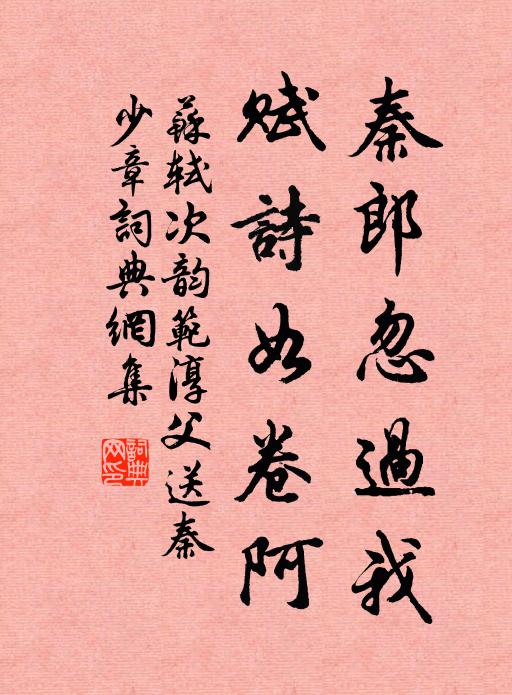 秦郎忽過我
賦詩如卷阿
蘇軾次韵範淳父送秦
少章詞典網集
詞典網印